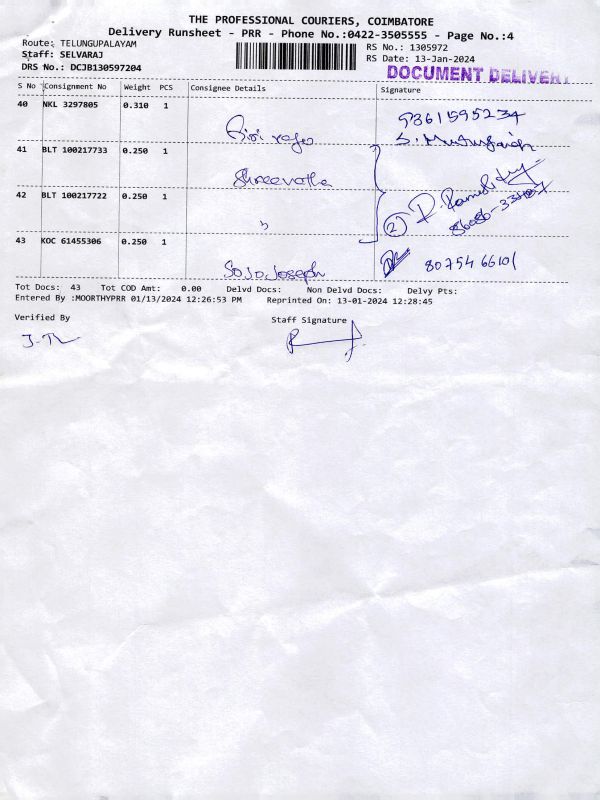 THE PROFESSIONAL COURIERS, COIMBATORE
Delivery Runsheet - PRR - Phone No.:0422-3505555 - Page No.:4
Route: TELUNGUPALAYAM
RS No.: 1305972
Staff: SELVARAJ
RS Date: 13-Jan-2024
DRS No.: DCJB130597204
DOCUMENT DELIVERY
S No Consignment No Weight PCS Consignee Details Signature
40 NKL 3297805 0.310 1
9361595234
41 BLT 100217733 0.250 1
Shreevatha
42 BLT 100217722 0.250 1
2
43 KOC 61455306 0.250 1
80754 66101
SoJo Joseph
Tot Docs: 43 Tot COD Amt: 0.00 Delvd Docs: Non Delvd Docs: Delvy Pts:
Entered By :MOORTHYPRR 01/13/2024 12:26:53 PM Reprinted On: 13-01-2024 12:28:45
Verified By Staff Signature